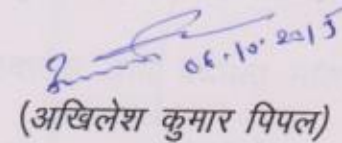 06.10.2015
(अखिलेश कुमार पिपल)